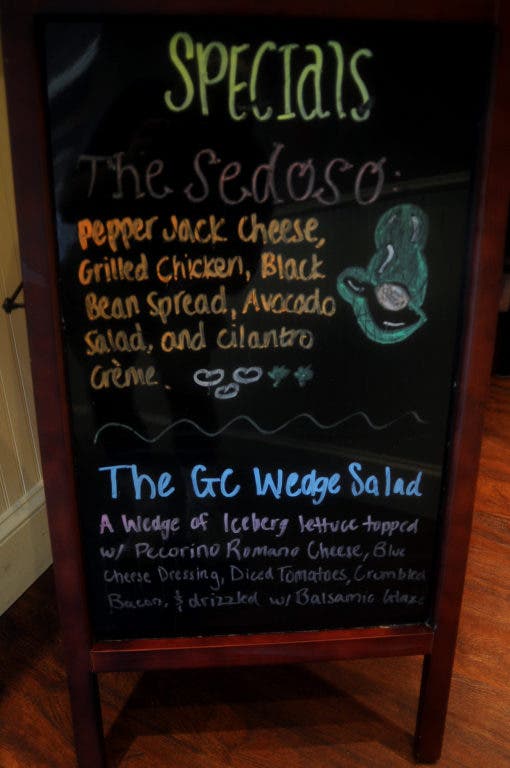 SPECIALS
The Sedoso:
Pepper Jack Cheese,
Grilled Chicken, Black
Bean Spread, Avocado
Salad, and cilantro
crème.
The GC Wedge Salad
A Wedge of Iceberg lettuce topped
w/ Pecorino Romano Cheese, Blue
Cheese Dressing, Diced Tomatoes, Crumbled
Bacon, & drizzled w/ Balsamic Glaze